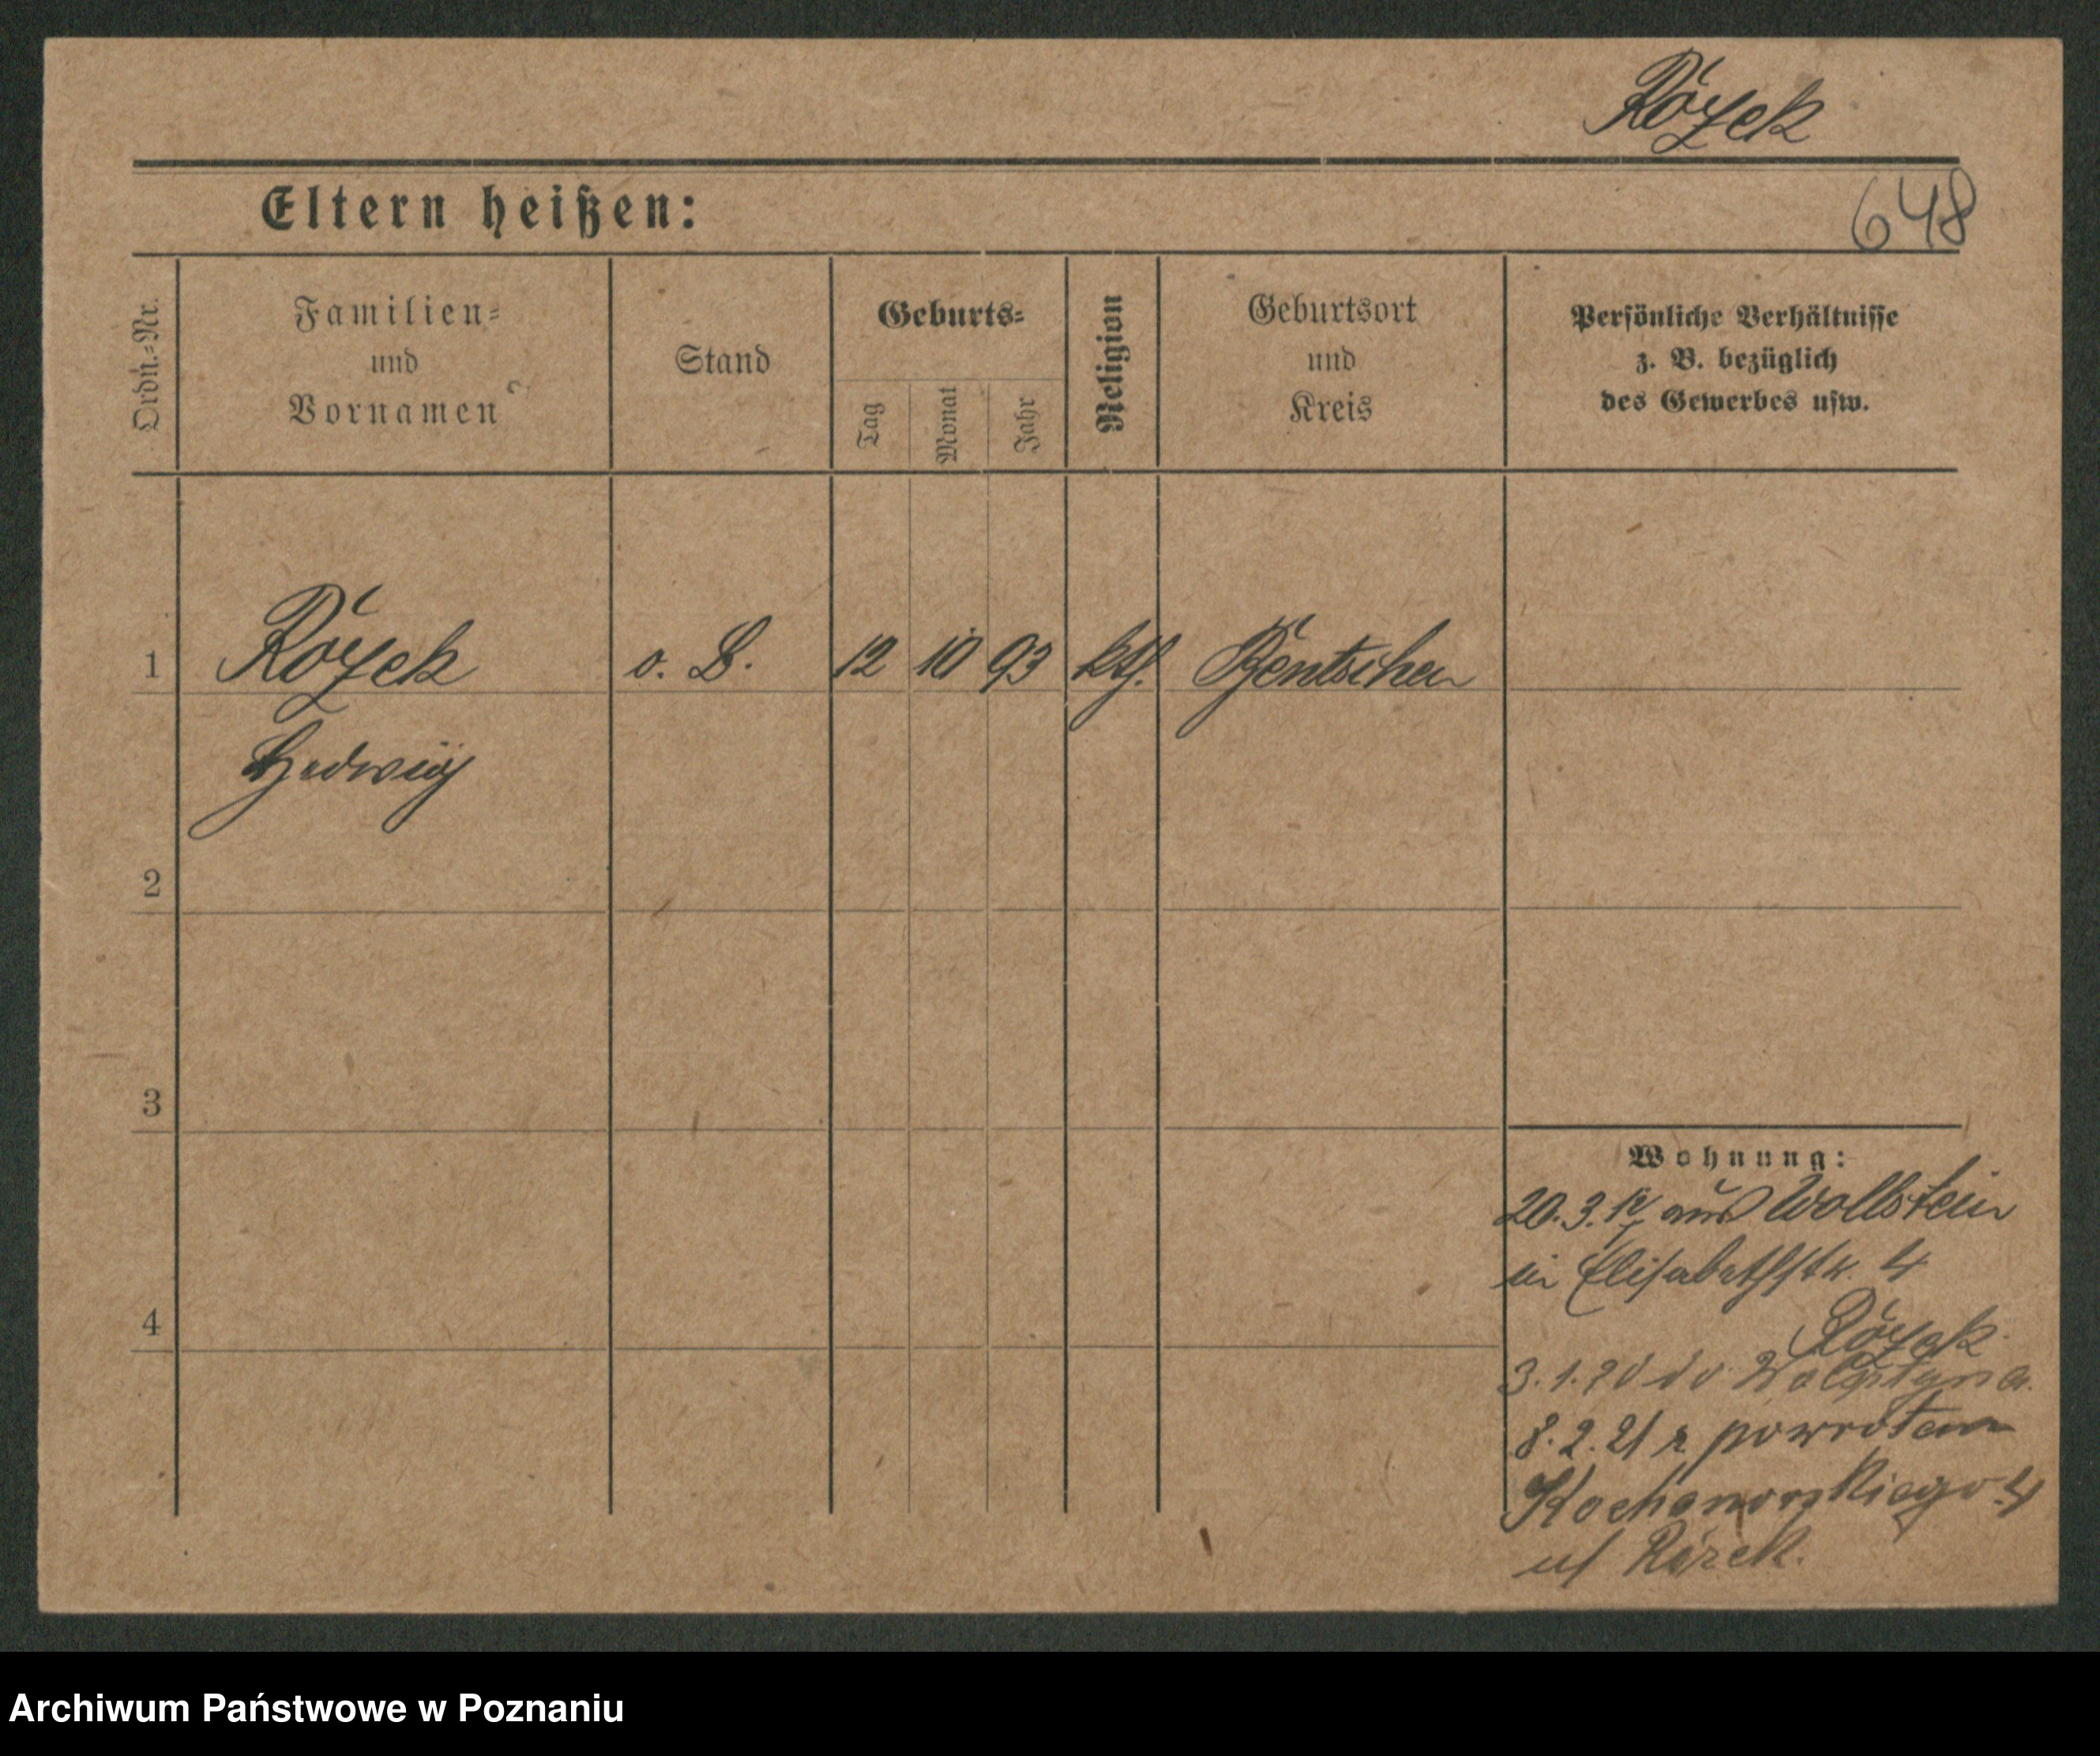 Rózek
Eltern heißen:
648
Ordn.-Nr.
Familien-
und
Vornamen
Stand
Geburts-
Tag
Monat
Jahr
Religion
Geburtsort
und
Kreis
Persönliche Verhältnisse
z. B. bezüglich
des Gewerbes usw.
1 Rózek o. B. 12 10 93 kth. Bentschen
Hedwig
2
3
4
Wohnung:
20. 3. 17 aus Wollstein
in Elisabethstr. 4
Rózek
3. 1. 20 do Wolsztyna
8. 2. 21 z powrotem
Kochanowskiego 4
u/ Rózek.
Archiwum Państwowe w Poznaniu